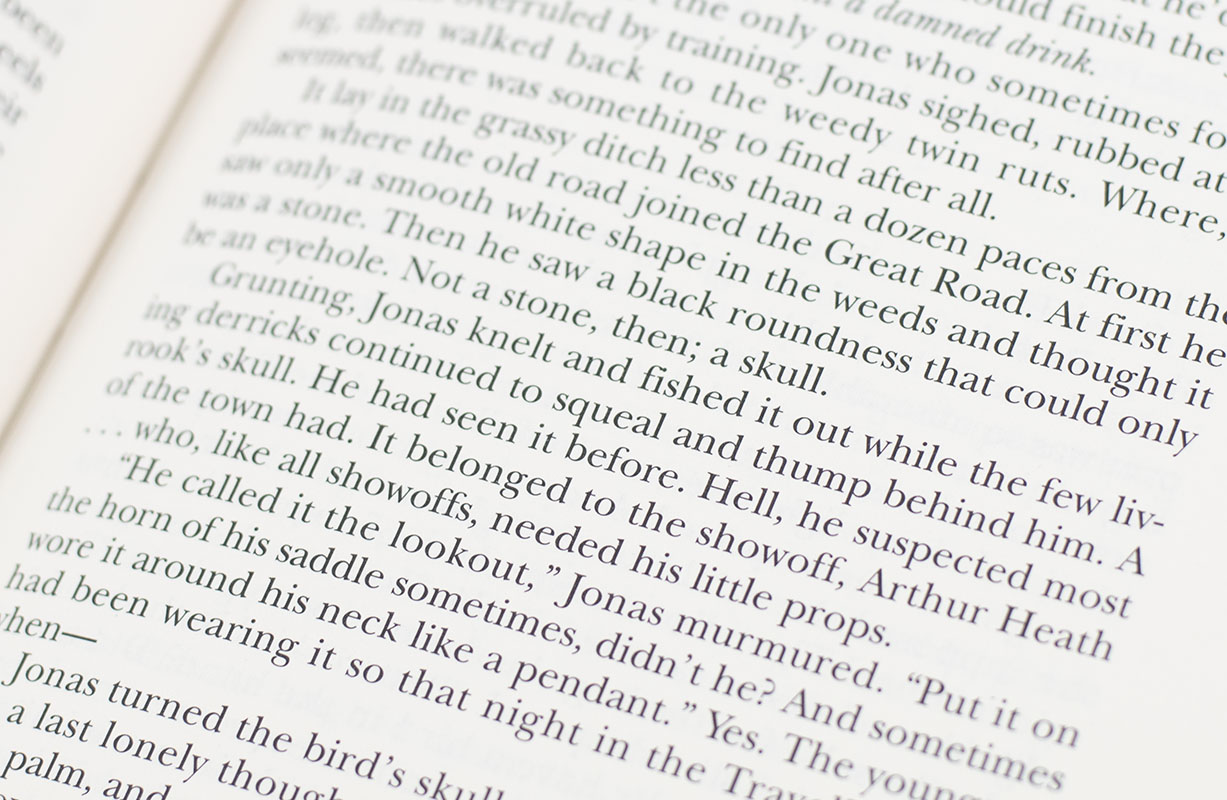 been
eels
eir
at he'd
ould finish the
a damned drink.
the only one who sometimes fo
overruled by training. Jonas sighed, rubbed at
leg, then walked back to the weedy twin ruts. Where,
seemed, there was something to find after all.
It lay in the grassy ditch less than a dozen paces from the
place where the old road joined the Great Road. At first he
saw only a smooth white shape in the weeds and thought it
was a stone. Then he saw a black roundness that could only
be an eyehole. Not a stone, then; a skull.
Grunting, Jonas knelt and fished it out while the few liv-
ing derricks continued to squeal and thump behind him. A
rook's skull. He had seen it before. Hell, he suspected most
of the town had. It belonged to the showoff, Arthur Heath
. . . who, like all showoffs, needed his little props.
“He called it the lookout,” Jonas murmured. “Put it on
the horn of his saddle sometimes, didn't he? And sometimes
wore it around his neck like a pendant.” Yes. The young
had been wearing it so that night in the Trav
when—
Jonas turned the bird's skull
a last lonely though
palm, and